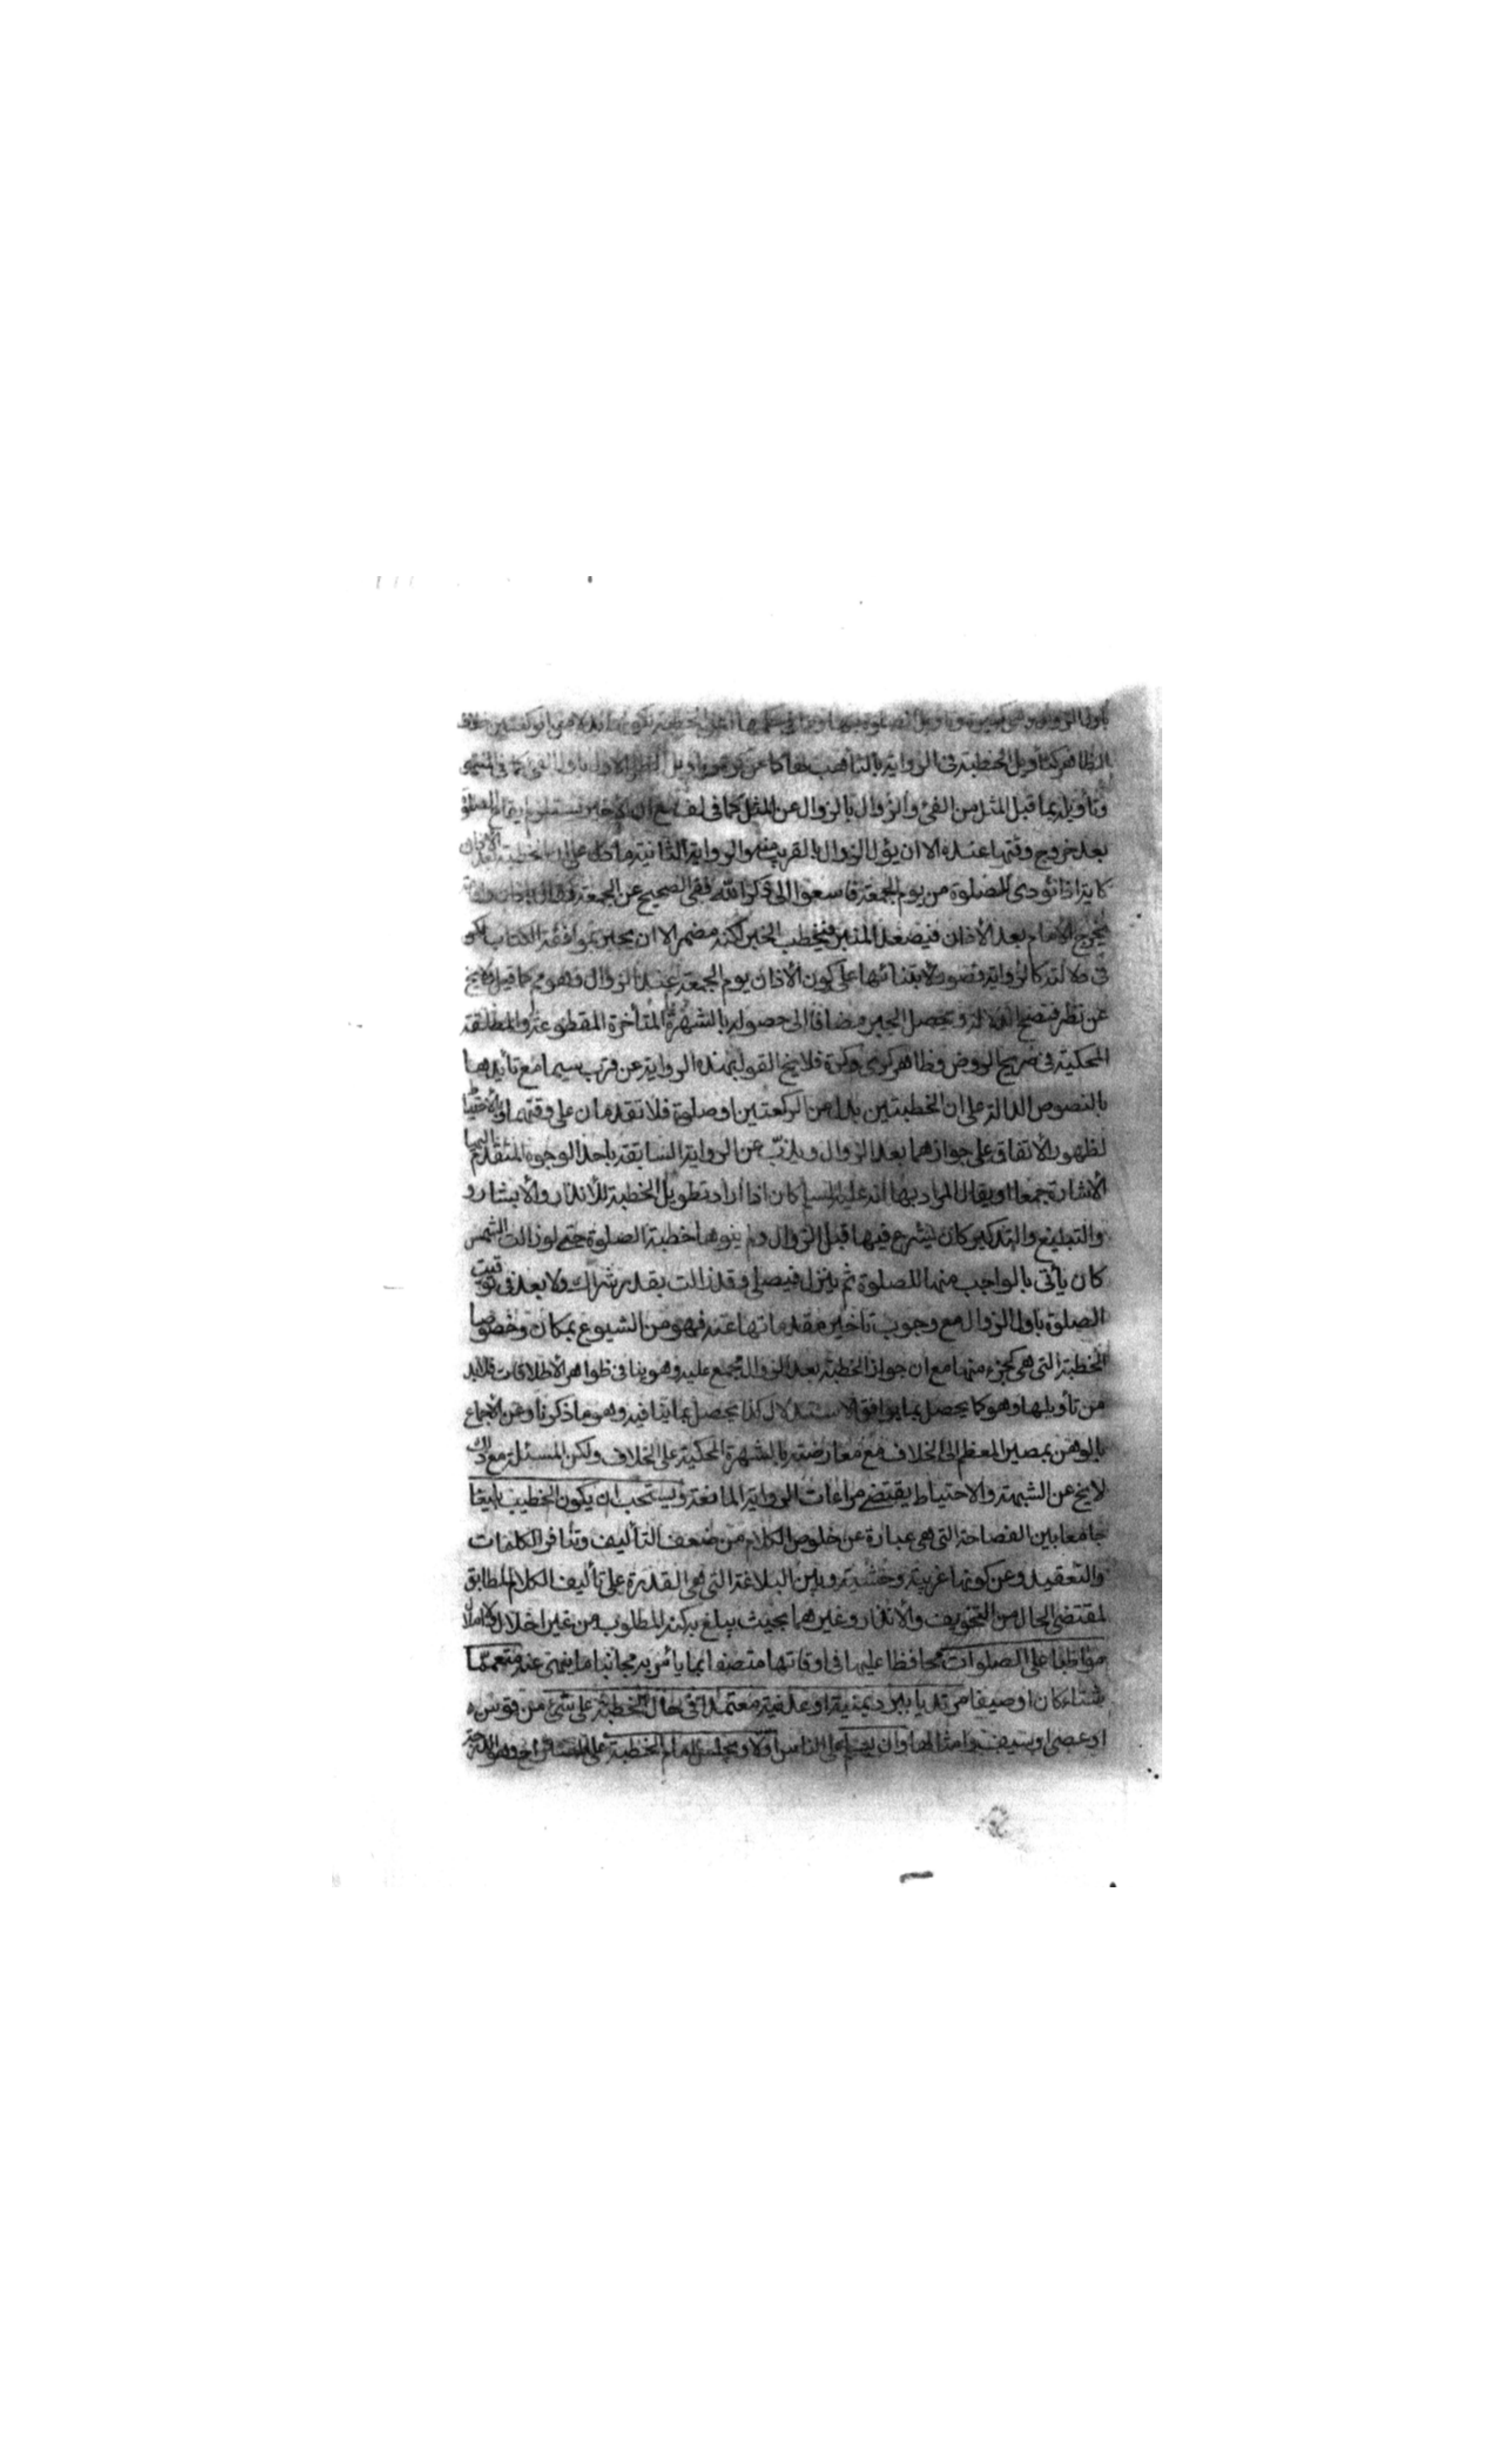 باول الزوال
الظاهر كتأويل الخطبة في الرواية بالتأهب لها كما عن الاول باول الفئ كما في المنتهى
وتأويله بما قبل المثل من الفئ والزوال بالزوال عن المثل كما في لف مع ان الاخير يستلزم ايقاع الصلوة
بعد خروج وقتها عنده الا ان يؤل الزوال بالقرب منه والرواية الثانية ما دل على ان الخطبة بعد الاذان
كاية اذا نودى للصلوة من يوم الجمعة فاسعوا الى ذكر الله ففى الصحيح عن الجمعة فقال باذان واقامة
يخرج الامام بعد الأذان فيصعد المنبر فيخطب الخبر لكنه مضمر الا ان يجبر بموافقة الكتاب لكن
فى دلالته كالرواية قصور لابتنائها على كون الأذان يوم الجمعة عند الزوال وهو مم كما قيل فلا يخ
عن نظر فتضح الدلالة ويحصل الجبر مضافا الى حصوله بالشهرة المتأخرة المقطوعة والمطلقة
المحكية في صريح الروض وظاهر كرى وكرة فلا يخ القول بهذه الرواية عن قرب سيما مع تأيدها
بالنصوص الدالة على ان الخطبتين بدل من الركعتين او صلوة فلا تقدمان على وقتهما وبالاحتياط
لظهور الاتفاق على جوازهما بعد الزوال ويذب عن الرواية السابقة باحد الوجوه المتقدم اليها
الأشارة جمعا او يقال المراد بها انه عليه السلم كان اذا اراد تطويل الخطبة للأنذار والأبشار و
والتبليغ والتذكير كان يشرع فيها قبل الزوال ولم ينوها خطبة الصلوة حتى لو زالت الشمس
كان يأتى بالواجب منها للصلوة ثم ينزل فيصلى وقد زالت بقدر شراك ولا بعد فى توقيت
الصلوة باول الزوال مع وجوب تاخير مقدماتها عنه فهو من الشيوع بمكان وخصوصا
الخطبة التى هى كجزء منها مع ان جواز الخطبة بعد الزوال مجمع عليه وهو ينافى ظواهر الأطلاقات فلا بد
من تأويلها وهو كما يحصل بما يوافق الاستدلال كذا يحصل بما ينافيه وهو ما ذكرنا وعن الأجماع
بالوهن بمصير المعظم الى الخلاف مع معارضته بالشهرة المحكية على الخلاف ولكن المسئلة مع ذلك
لا يخ عن الشبهة والاحتياط يقتضى مراعات الرواية المانعة ويستحب ان يكون الخطيب بليغا
جامعا بين الفصاحة التى هى عبارة عن خلوص الكلام من ضعف التأليف وتنافر الكلمات
والتعقيد وعن كونها غريبة وحشية وبين البلاغة التى هى القدرة على تأليف الكلام المطابق
لمقتضى الحال من التخويف والأنذار وغيرهما بحيث يبلغ به كنه المطلوب من غير اخلال ولا املال
مواظبا على الصلوات محافظا عليها فى اوقاتها متصفا بما يأمر به مجانبا ما ينهى عنه متعمما
شتاء كان او صيفا مرتديا ببرد يمنية او عدنية معتمدا فى حال الخطبة على شئ من قوس
او عصى او سيف وامثالها وان يسلم على الناس اولا ويجلس امام الخطبة على